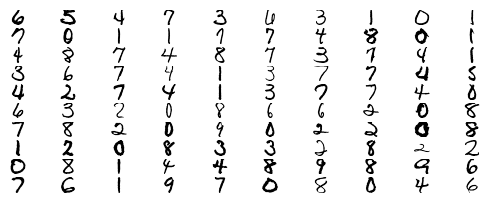 6 5 4 7 3 6 3 1 0 1
7 0 1 1 7 7 4 8 0 1
4 8 7 4 8 7 3 7 4 1
3 6 7 4 1 3 7 7 4 5
4 2 7 4 1 3 7 7 4 0
6 3 2 0 8 6 6 2 0 8
7 8 2 0 9 0 2 2 0 8
1 2 0 8 3 3 2 8 2 2
0 8 1 4 4 8 9 8 9 6
7 6 1 9 7 0 8 0 4 6